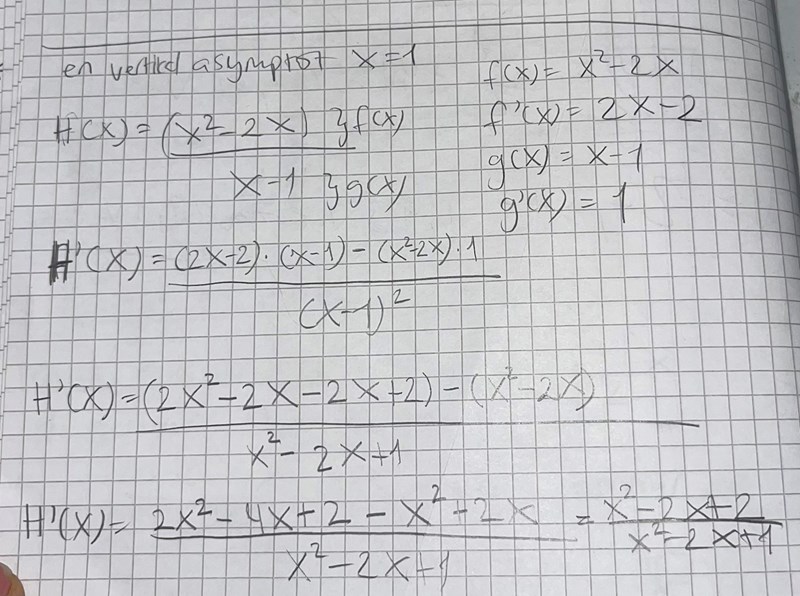 en vertikal asymptot x=1
f(x) = x²-2x
H(x) = (x²-2x) }f(x)
f'(x) = 2x-2
x-1 }g(x)
g(x) = x-1
g'(x) = 1
H'(x) = (2x-2)·(x-1)-(x²-2x)·1
(x-1)²
H'(x)=(2x²-2x-2x+2)-(x²-2x)
x²-2x+1
H'(x)= 2x²-4x+2-x²+2x = x²-2x+2
x²-2x+1 x²-2x+1